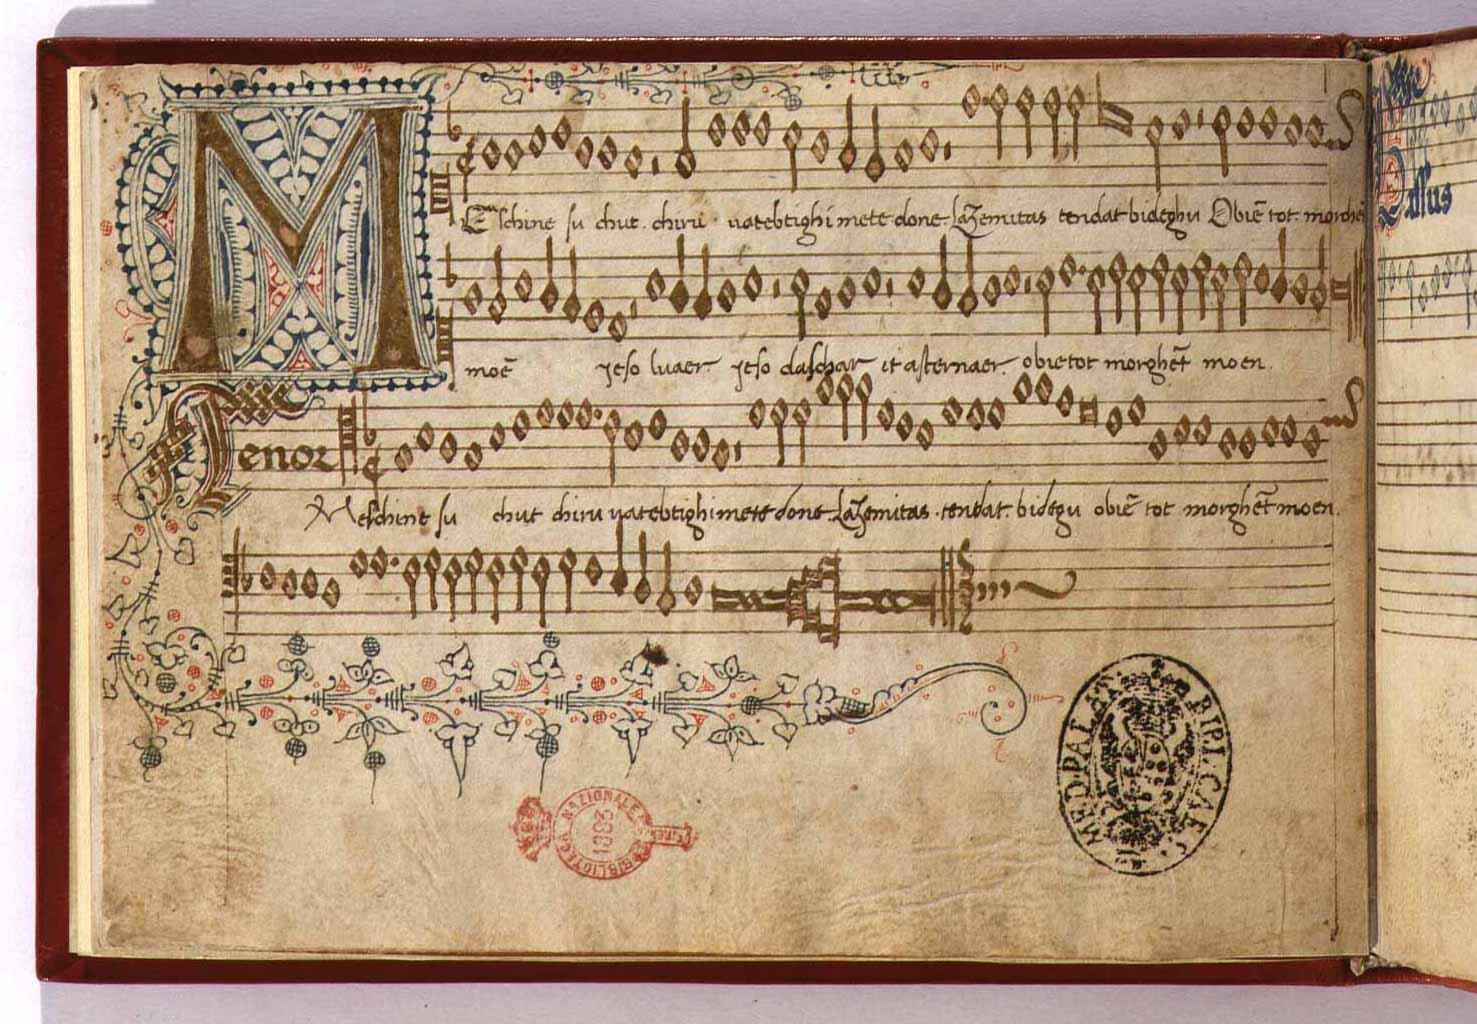 M
Emschine su chut. chiru. vatebtighi mete done. Lazemitas tendat bideghu Obiē tot. morchēt
moē jeso luaer jeso daschar it asternaer. obietot morghēt moen.
Tenor
Meschine su chut chiru vatebtighi mete done. Lazemitas. tendat. bidegu obiē tot morghēt moen.
BIBLIOTECA NAZIONALE
1883
MED. PALAT. BIBL. CAES.